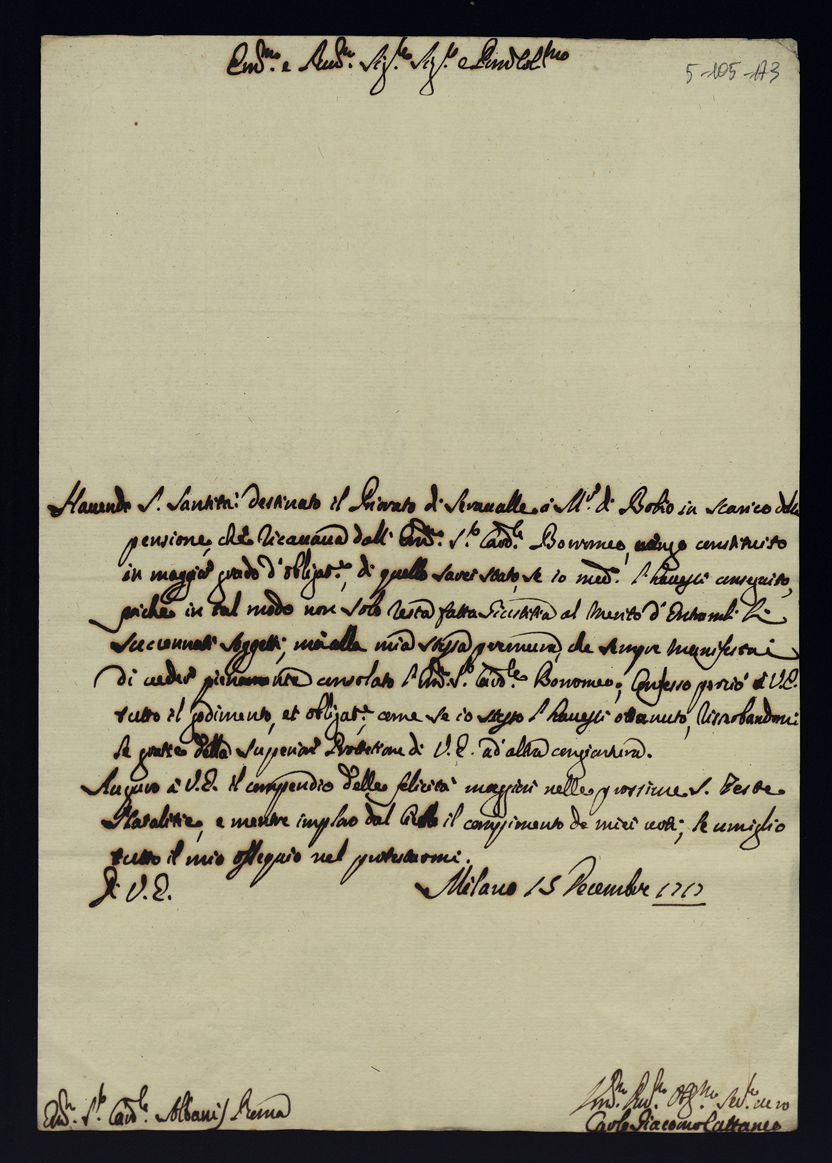 Em.mo e Rev.mo Sig.re Sig.re e Pron Col.mo
5-105-173
Havendo S. Santità destinato il Priorato di Seravalle à M.r di Bobio in scarico della
pensione, che Ricavava dall' Em.mo S.r Card.le Borromeo, vengo constituito
in maggior grado d'obligat.ne, di quello sarei stato, se io med.mo l'havessi conseguito,
poiche in tal modo non solo resta fatta Giustitia al Merito d'Entrambi li
succennati soggetti, mà alla mia stessa premura, che sempre manifestai
di veder pienamente consolato l'Em.mo S.r Card.le Borromeo; Confesso perciò à V.E.
tutto il godimento, et obligat.ne, come se io stesso l'havessi ottenuto, riserbandomi
le gratie della Superior Protettione di V.E. ad' altra congiontura.
Auguro à V.E. il compendio delle felicità maggiori nelle prossime S. Feste
Natalitie, e mentre imploro dal Cielo il compimento de miei voti; le umiglio
tutto il mio ossequio nel protestarmi.
Di V.E. Milano 15 Decembre 1717
Em.mo S.r Card.le Albani / Roma
Um.mo Dev.mo Obg.mo Ser.re vero
Carlo Giacomo Cattaneo